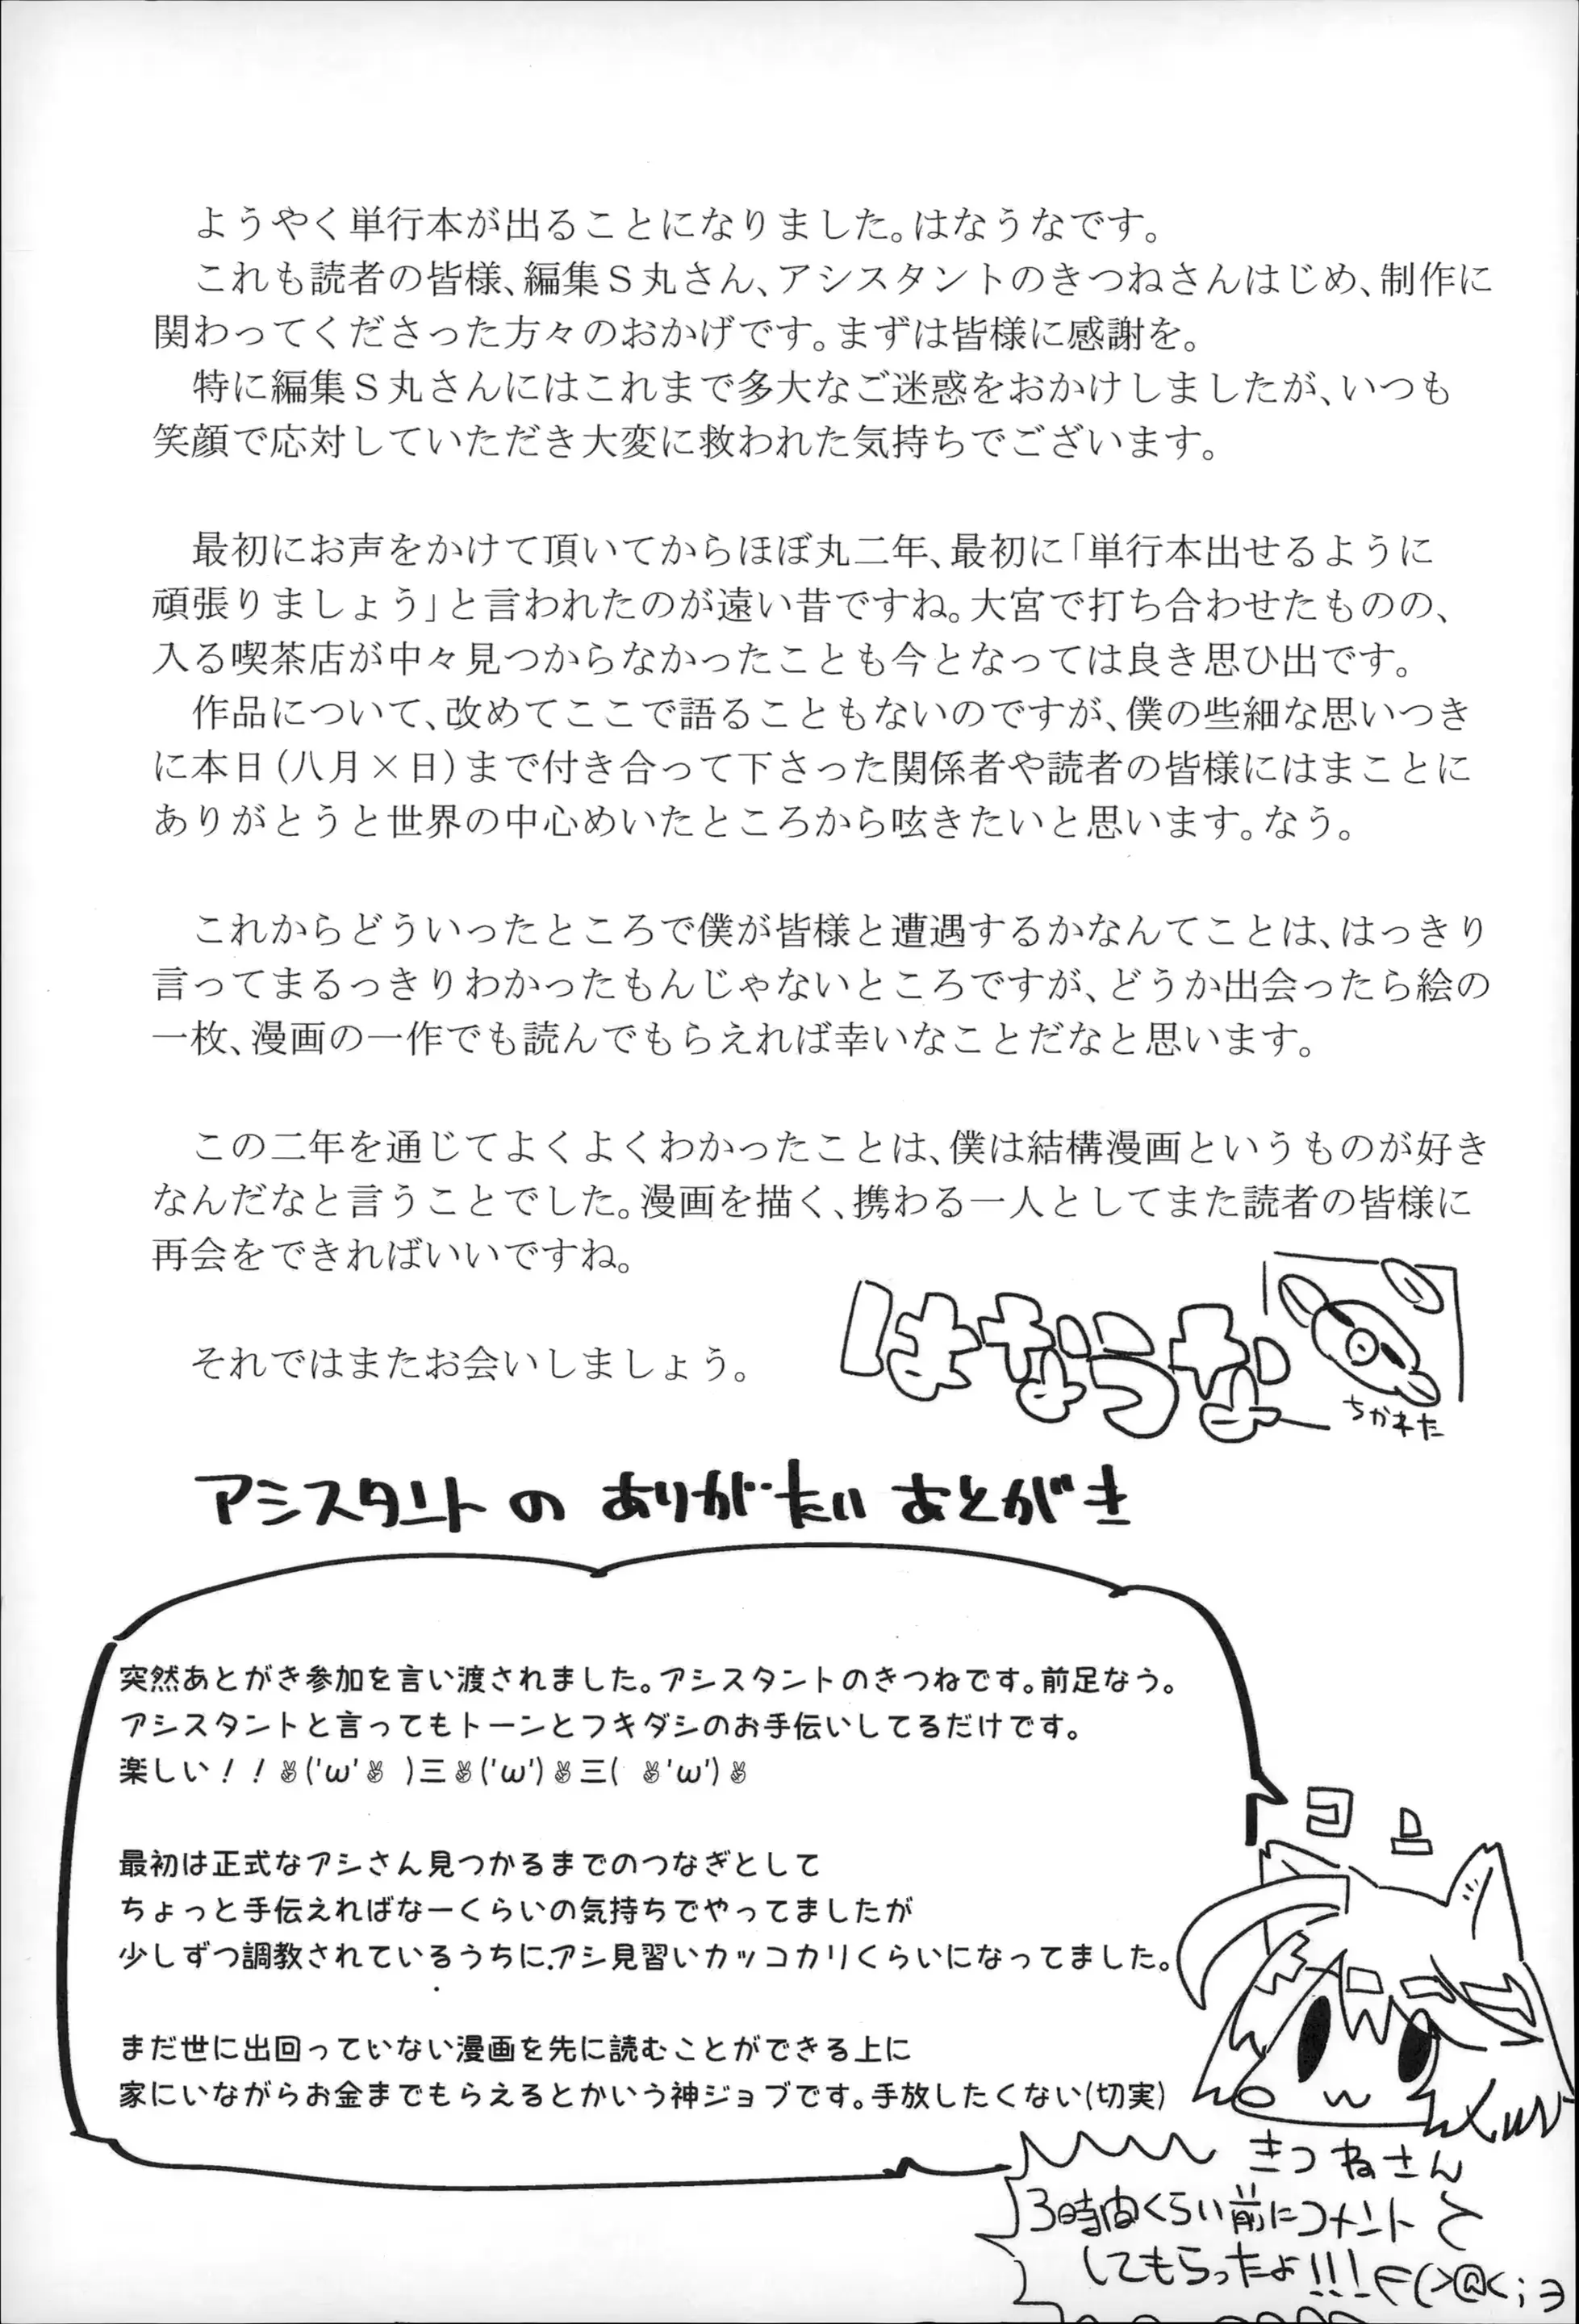 ようやく単行本が出ることになりました。はなうなです。
これも読者の皆様、編集Ｓ丸さん、アシスタントのきつねさんはじめ、制作に
関わってくださった方々のおかげです。まずは皆様に感謝を。
特に編集Ｓ丸さんにはこれまで多大なご迷惑をおかけしましたが、いつも
笑顔で応対していただき大変に救われた気持ちでございます。
最初にお声をかけて頂いてからほぼ丸二年、最初に「単行本出せるように
頑張りましょう」と言われたのが遠い昔ですね。大宮で打ち合わせたものの、
入る喫茶店が中々見つからなかったことも今となっては良き思ひ出です。
作品について、改めてここで語ることもないのですが、僕の些細な思いつき
に本日（八月×日）まで付き合って下さった関係者や読者の皆様にはまことに
ありがとうと世界の中心めいたところから呟きたいと思います。なう。
これからどういったところで僕が皆様と遭遇するかなんてことは、はっきり
言ってまるっきりわかったもんじゃないところですが、どうか出会ったら絵の
一枚、漫画の一作でも読んでもらえれば幸いなことだなと思います。
この二年を通じてよくよくわかったことは、僕は結構漫画というものが好き
なんだなと言うことでした。漫画を描く、携わる一人としてまた読者の皆様に
再会をできればいいですね。
それではまたお会いしましょう。
はなうな
ちかれた
アシスタントの ありがたい あとがき
突然あとがき参加を言い渡されました。アシスタントのきつねです。前足なう。
アシスタントと言ってもトーンとフキダシのお手伝いしてるだけです。
楽しい！！✌('ω'✌ )三✌('ω')✌三( ✌'ω')✌
最初は正式なアシさん見つかるまでのつなぎとして
ちょっと手伝えればなーくらいの気持ちでやってましたが
少しずつ調教されているうちに、アシ見習いカッコカリくらいになってました。
まだ世に出回っていない漫画を先に読むことができる上に
家にいながらお金までもらえるとかいう神ジョブです。手放したくない(切実)
きつねさん
3時間くらい前にコメント
してもらったよ!!!